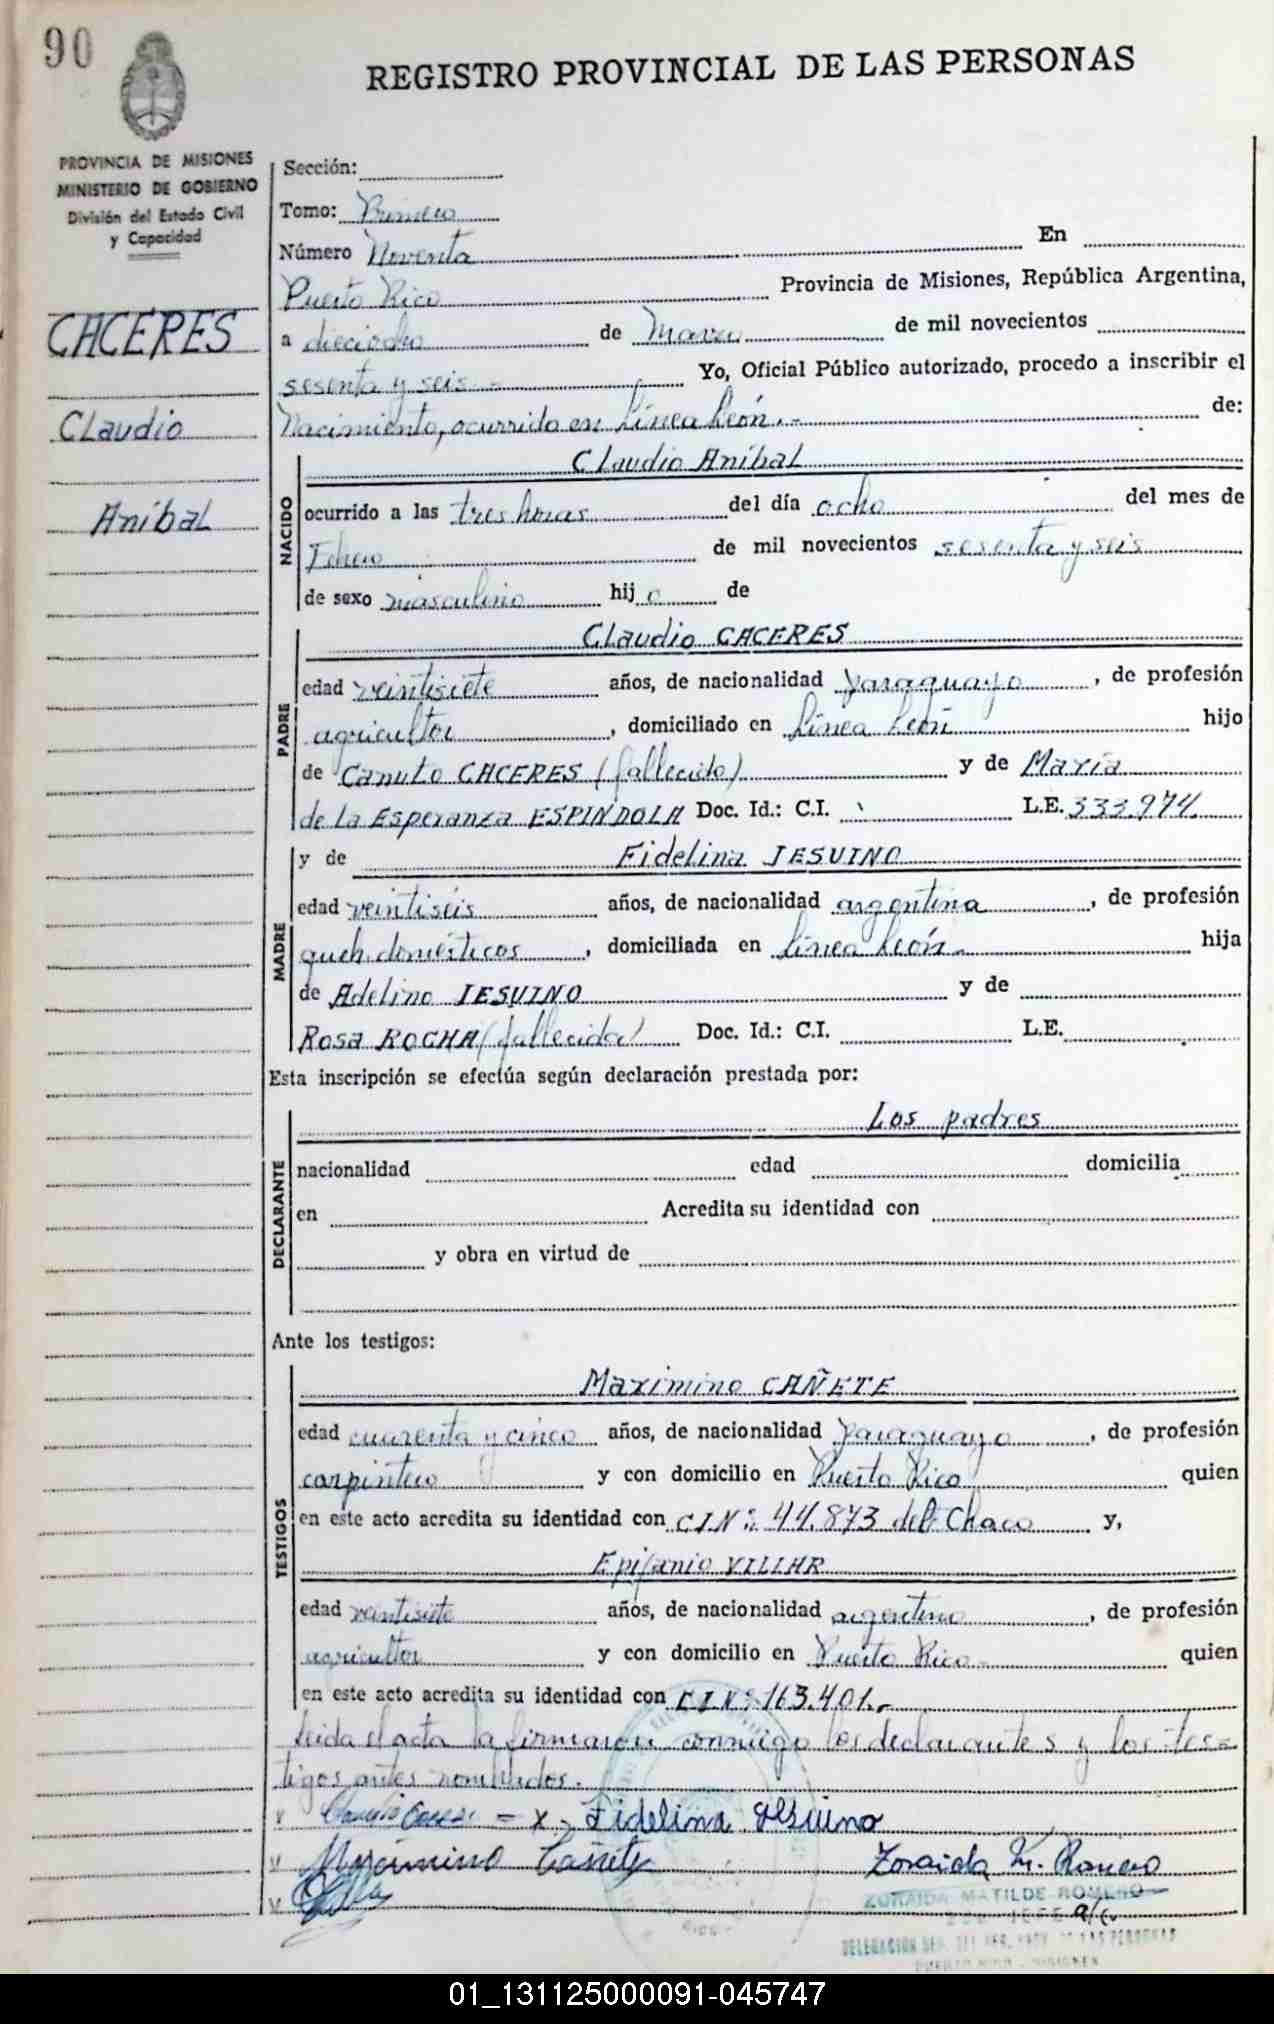 90
REGISTRO PROVINCIAL DE LAS PERSONAS
PROVINCIA DE MISIONES
MINISTERIO DE GOBIERNO
División del Estado Civil
y Capacidad
CACERES
Claudio
Aníbal
Sección:
Tomo: Primero
Número Noventa En
Puerto Rico Provincia de Misiones, República Argentina,
a dieciocho de Marzo de mil novecientos
sesenta y seis.- Yo, Oficial Público autorizado, procedo a inscribir el
Nacimiento, ocurrido en Línea León.- de:
NACIDO
Claudio Aníbal
ocurrido a las tres horas del día ocho del mes de
de mil novecientos sesenta y seis
de sexo masculino hijo de
PADRE
Claudio CACERES
edad veintisiete años, de nacionalidad paraguayo, de profesión
agricultor, domiciliado en Línea León hijo
de Canuto CACERES (fallecido) y de María
de la Esperanza ESPINDOLA Doc. Id.: C.I. L.E. 333.974.
MADRE
y de Fidelina JESUINO
edad veintiseis años, de nacionalidad argentina, de profesión
queh. domésticos, domiciliada en Línea León.- hija
de Adelino JESUINO y de
Rosa ROCHA (fallecida) Doc. Id.: C.I. L.E.
Esta inscripción se efectúa según declaración prestada por:
DECLARANTE
Los padres
nacionalidad edad domicilia
en Acredita su identidad con
y obra en virtud de
Ante los testigos:
TESTIGOS
Maximino CAÑETE
edad cuarenta y cinco años, de nacionalidad paraguayo, de profesión
carpintero y con domicilio en Puerto Rico quien
en este acto acredita su identidad con C.I.Nº: 44.873 del Chaco y,
Epifanio VILLAR
edad veintisiete años, de nacionalidad argentino, de profesión
agricultor y con domicilio en Puerto Rico.- quien
en este acto acredita su identidad con C.I.Nº: 163.401.-
Leida el acta la firmaron conmigo los declarantes y los tes-
tigos antes nombrados.
x Fidelina Jesuino
Maximino Cañete Zoraida M. Romero
ZORAIDA MATILDE ROMERO
JEFE a/c.
DE LAS PERSONAS
PUERTO RICO - MISIONES
01_131125000091-045747